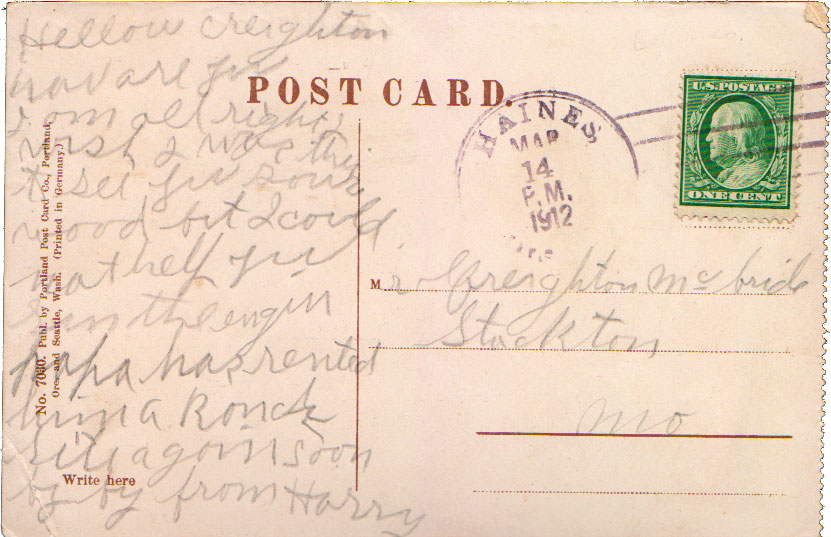 Hellow Creighton
how are you
I am all right
wish I was ther
to see you sour
wood but I could
not help you
run the engin
papa has rented
him a Ranch
rite again soon
by by from Harry
No. 7030. Publ. by Portland Post Card Co., Portland,
Ore. and Seattle, Wash. (Printed in Germany.)
Write here
POST CARD.
HAINES
MAR
14
P.M.
1912
U.S. POSTAGE
ONE CENT
Mr Creighton Mcbride
Stockton
Mo